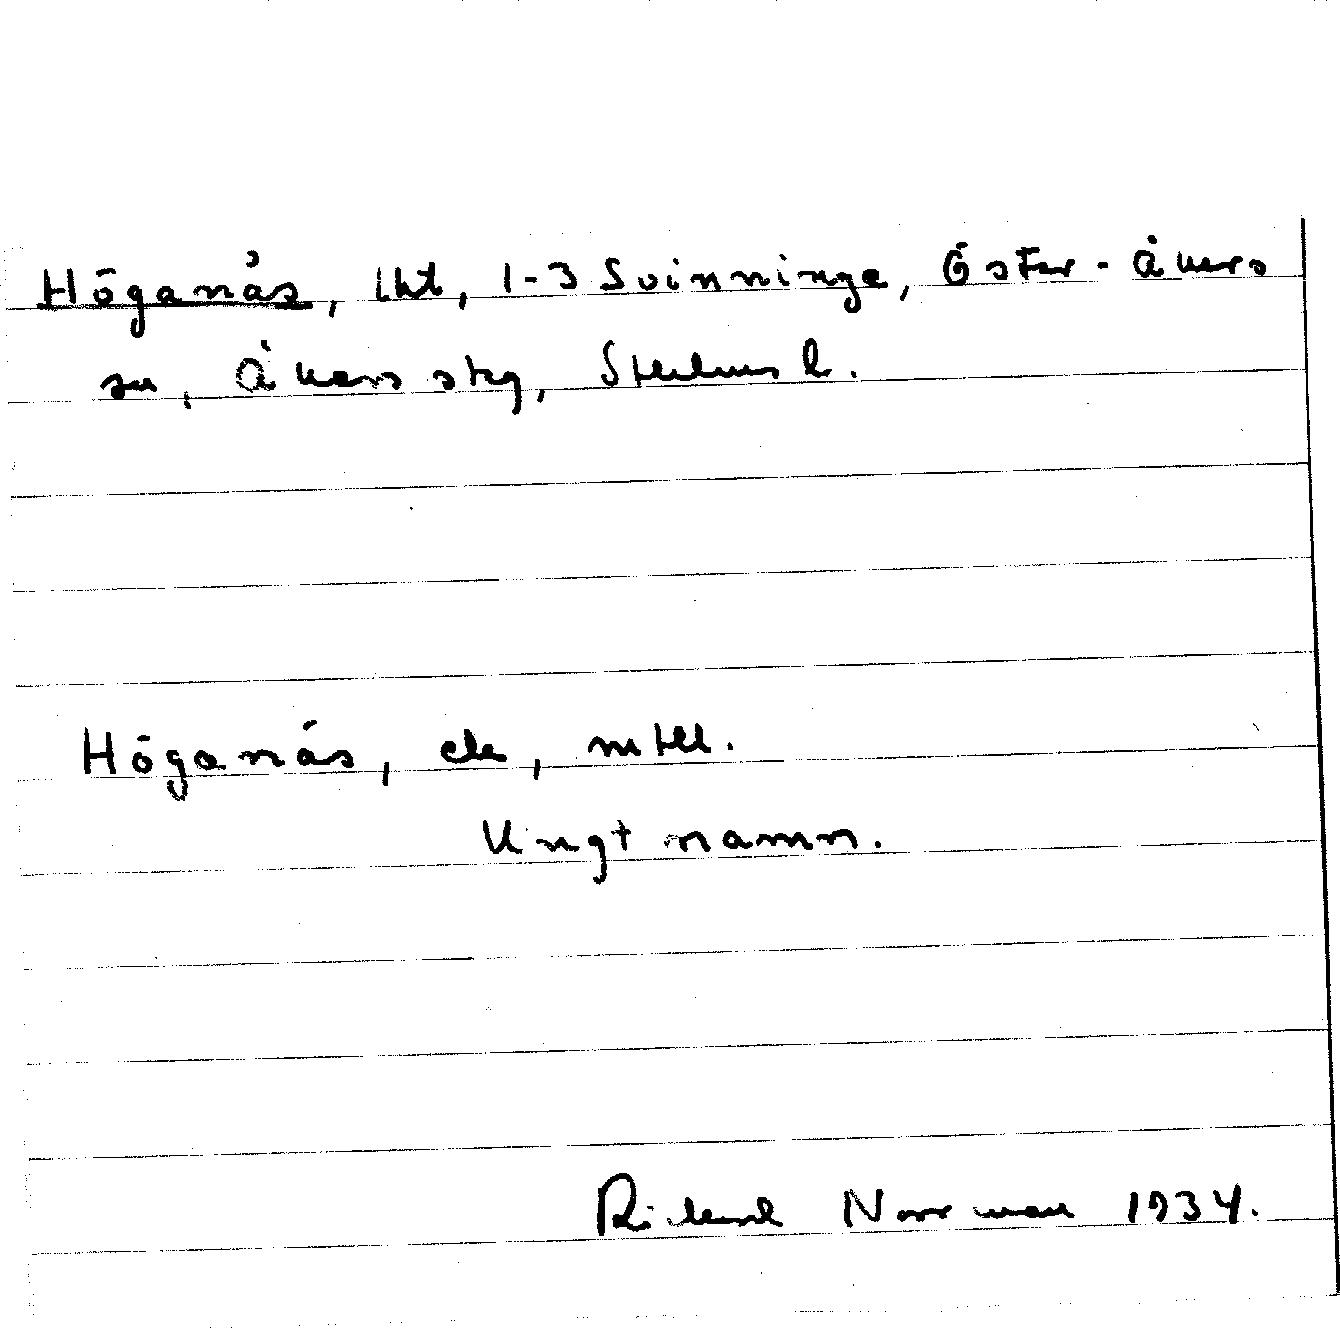 Höganäs, lht, 1-3 Svinninge, Öster-Åkers
sn, Åkers skg, Sthlms l.
Höganäs, mtll.
Ungt namn.
Rikard Norrman 1934.